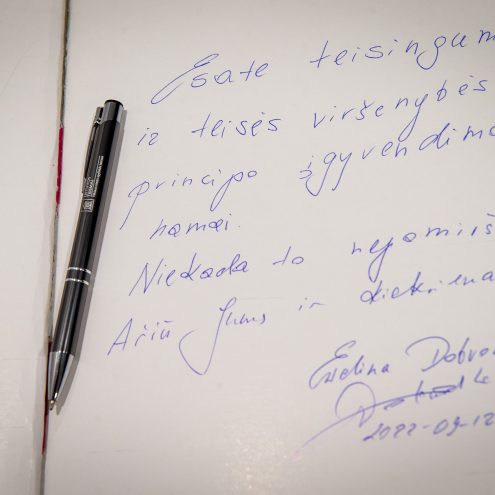 Esate teisingum
ir teisės viršenybės
principo įgyvendimo
namai.
Niekada to nepamirš
Ačiū Jums ir kiekviena
Evelina Dobrov
2022-09-12